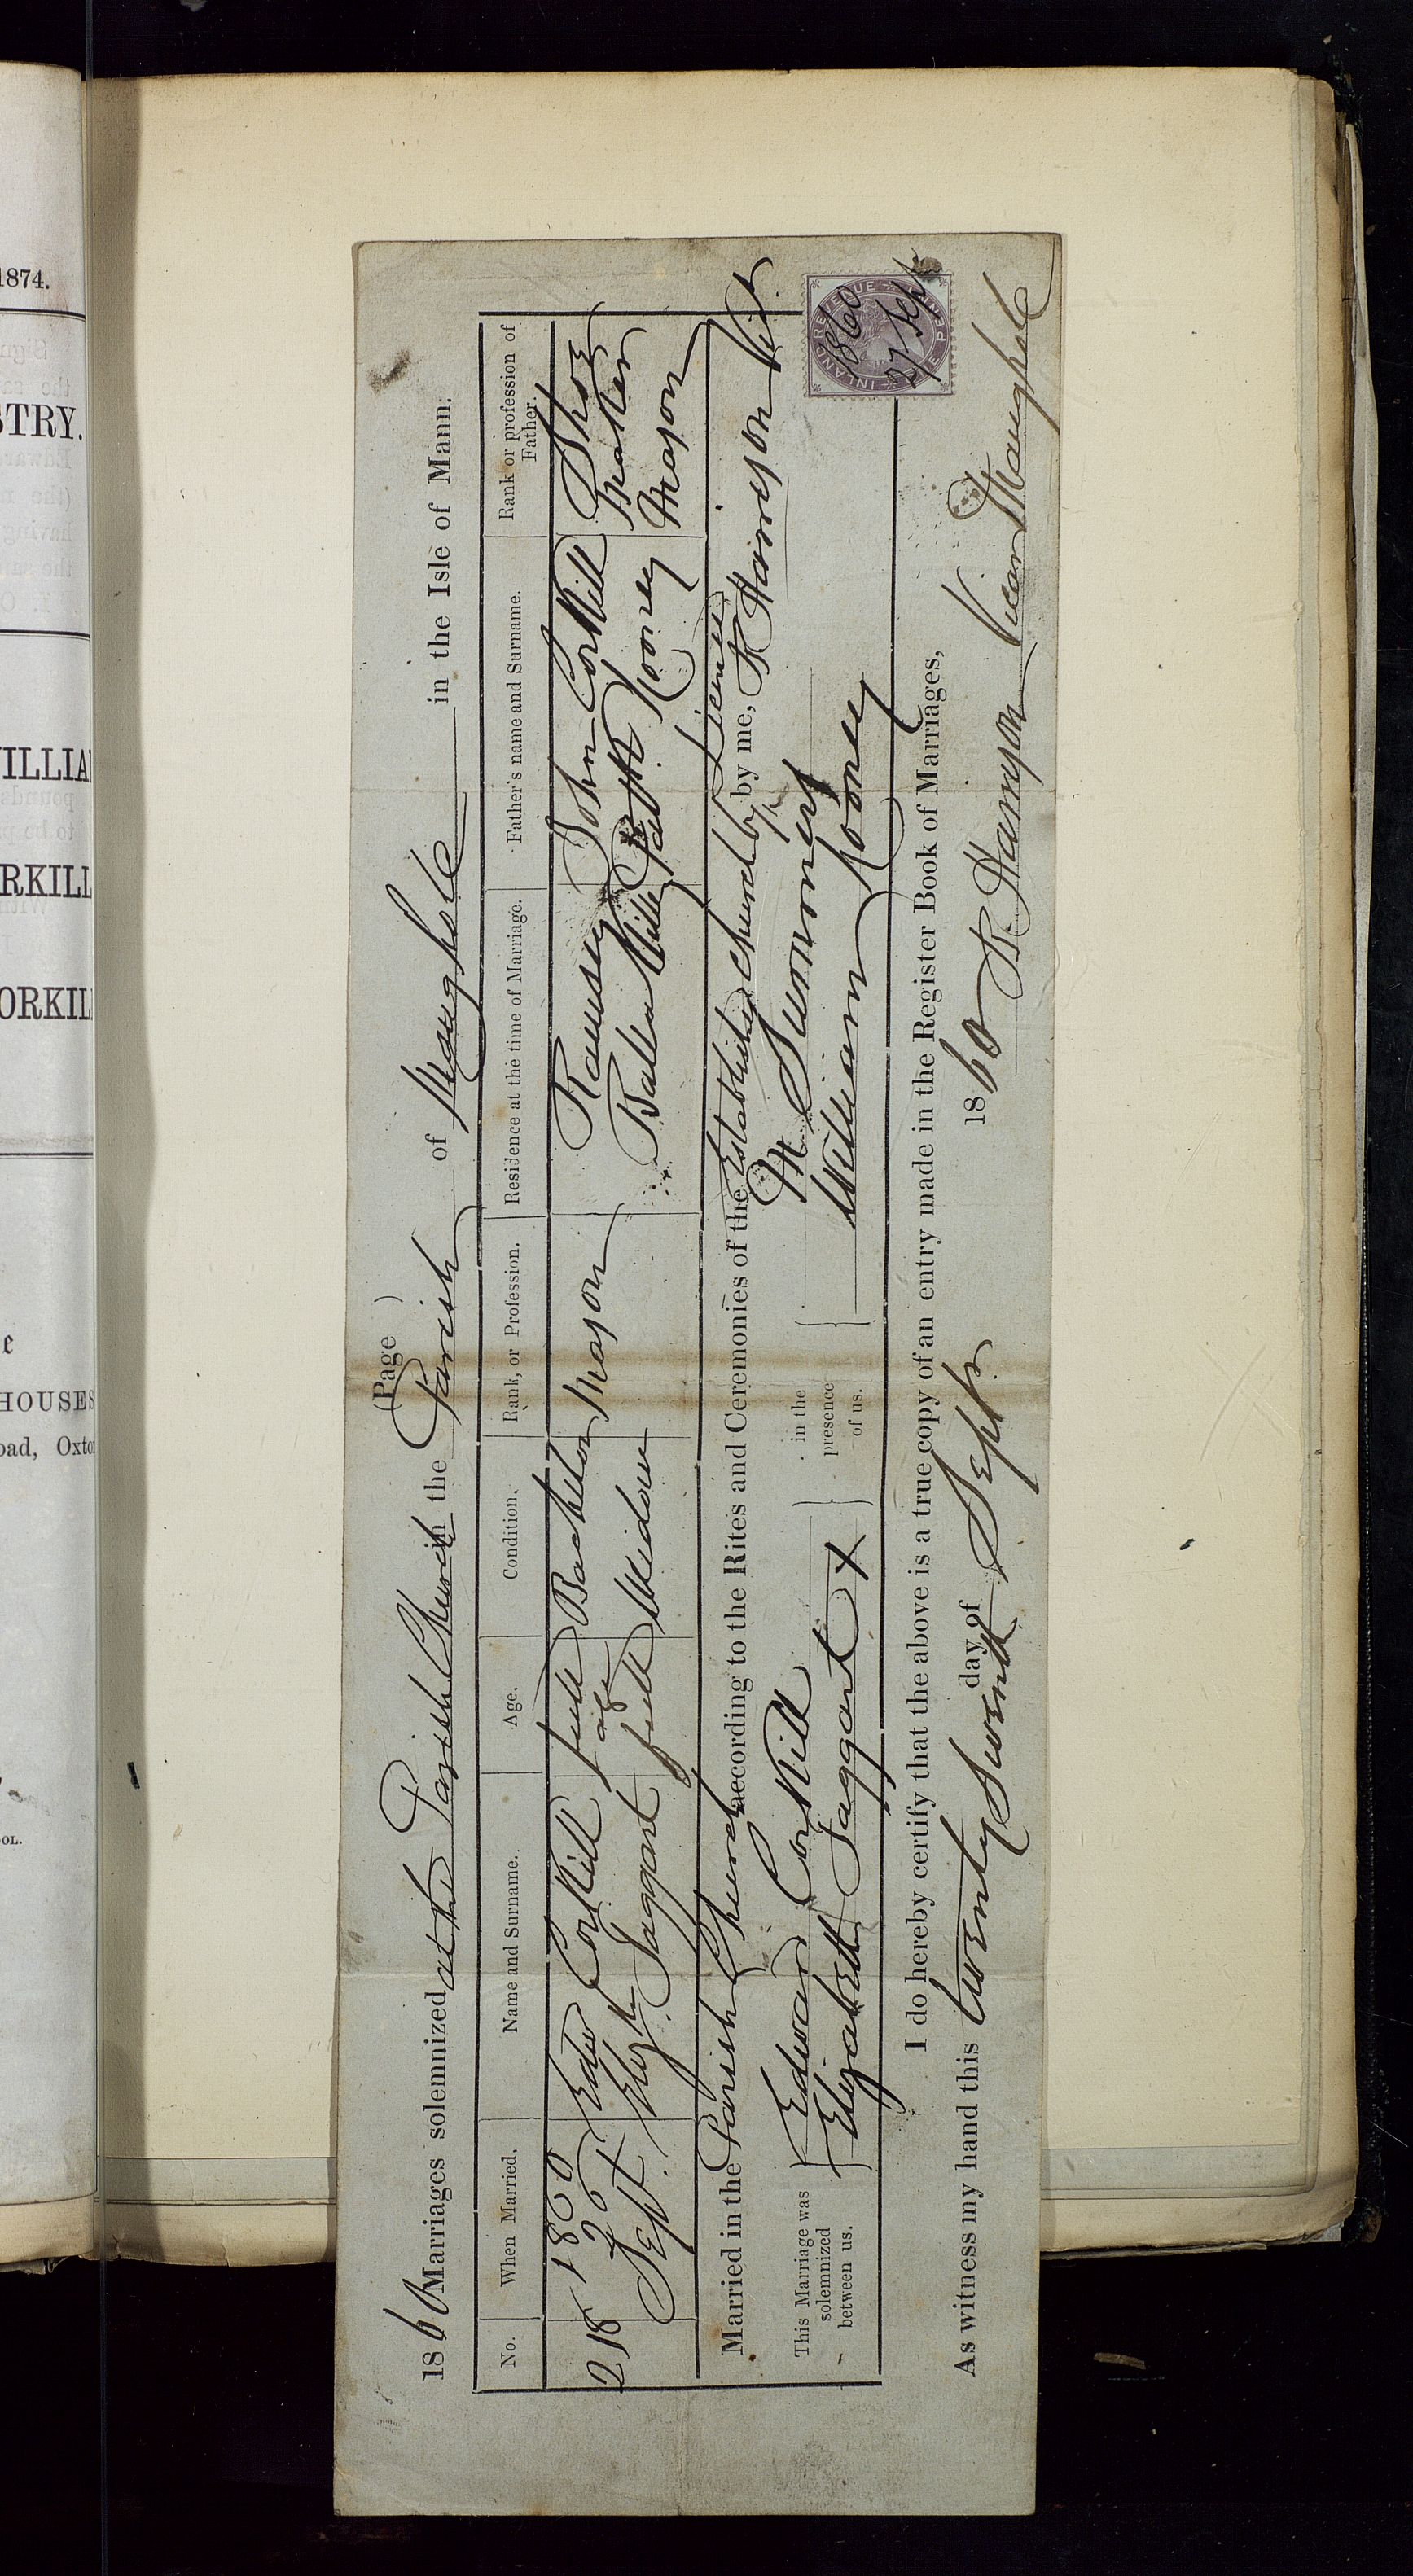 1874.
STRY.
VILLIA
RKILL
ORKIL
HOUSES
oad, Oxto
OL.
(Page )
1860 Marriages solemnized at the Parish Church in the Parish of Maughold in the Isle of Mann.
No. When Married. Name and Surname. Age. Condition. Rank, or Profession. Residence at the time of Marriage. Father's name and Surname. Rank or profession of Father.
218 1860 26 Sept. Edw Corkill full age Bachelor Mason Ramsey John Corkill Shoe Maker
Elizth Taggart full Widow Balla Killey Patk Kooney Mason
Married in the Parish Church according to the Rites and Ceremonies of the Established Church by Licence by me, B Harrison Vic.
This Marriage was solemnized between us. Edward Corkill in the presence of us. M
Elizabeth Taggart X William Kooney
INLAND REVENUE ONE PENNY
1860
27 Sept
I do hereby certify that the above is a true copy of an entry made in the Register Book of Marriages,
As witness my hand this twenty seventh day of Sept. 1860 B. Harrison Vicar Maughold